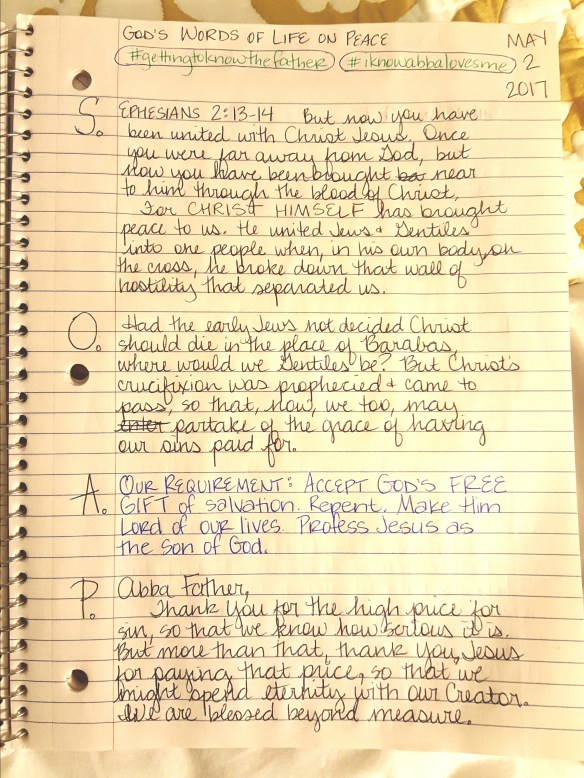 GOD'S WORDS OF LIFE ON PEACE
MAY
#gettingtoknowthefather #iknowabbalovesme
2
2017
S. EPHESIANS 2:13-14 But now you have
been united with Christ Jesus. Once
you were far away from God, but
now you have been brought near
to him through the blood of Christ.
For CHRIST HIMSELF has brought
peace to us. He united Jews & Gentiles
into one people when, in his own body on
the cross, he broke down that wall of
hostility that separated us.
O. Had the early Jews not decided Christ
should die in the place of Barabas,
where would we Gentiles be? But Christ's
crucifixion was prophecied & came to
pass, so that, now, we too, may
enter partake of the grace of having
our sins paid for.
A. OUR REQUIREMENT: ACCEPT GOD'S FREE
GIFT of salvation. Repent. Make Him
Lord of our lives. Profess Jesus as
the Son of God.
P. Abba Father,
Thank You for the high price for
sin, so that we know how serious it is.
But more than that, thank you, Jesus
for paying that price, so that we
might spend eternity with our Creator.
We are blessed beyond measure.